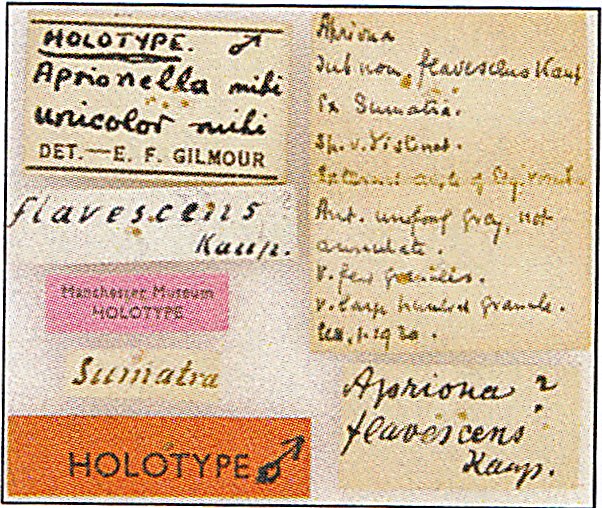 HOLOTYPE. ♂
Aprionella mihi
unicolor mihi
DET.—E. F. GILMOUR
flavescens
Kaup.
Manchester Museum
HOLOTYPE
Sumatra
HOLOTYPE ♂
Apriona
sub nom. flavescens Kaup
Ex Sumatra.
sp. v. distinct.
External angle of
Ant. unif. gray, not
annulate.
v. few granules.
v. large humeral granule.
1.1930.
Apriona ?
flavescens
Kaup.